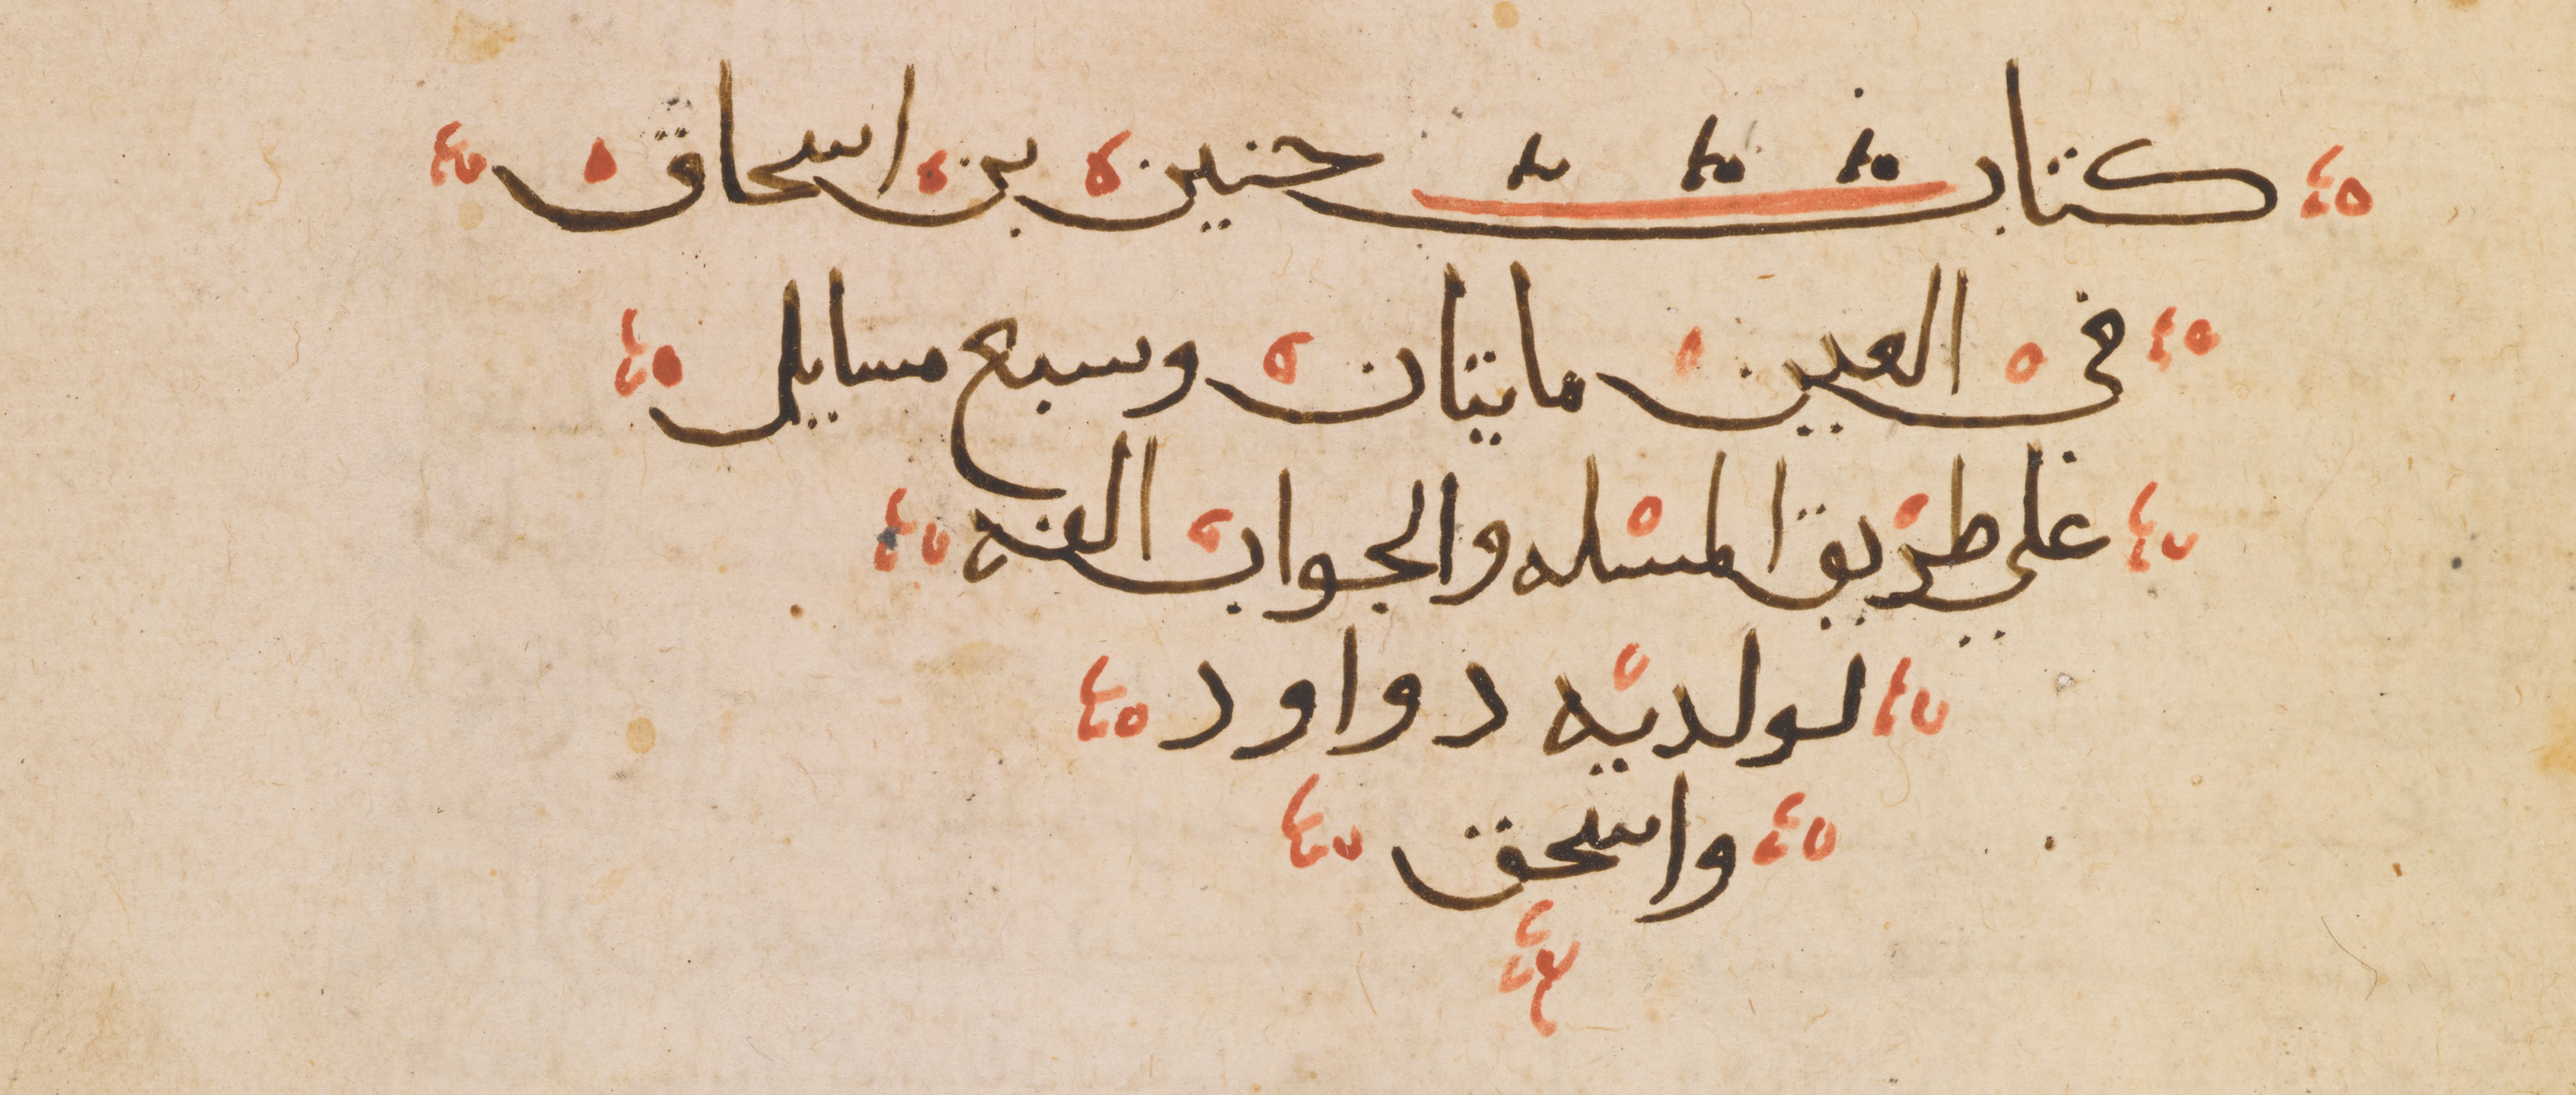 كتاب حنين بن اسحاق
في العين مايتان وسبع مسايل
علي طريق المسله والجواب الفه
لولديه دواود
واسحق